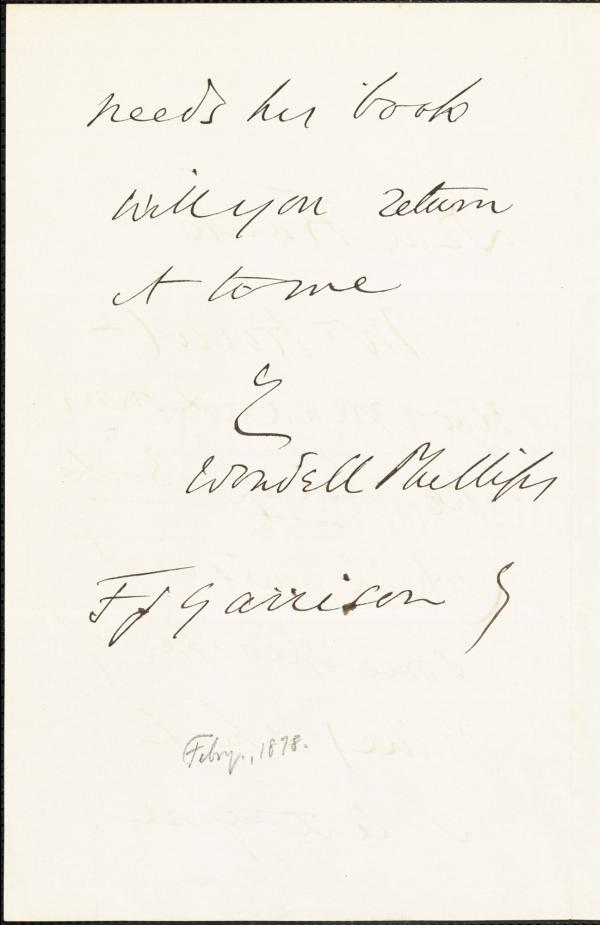 needs her book
will you return
it to me
Wendell Phillips
F J Garrison
Febry., 1878.